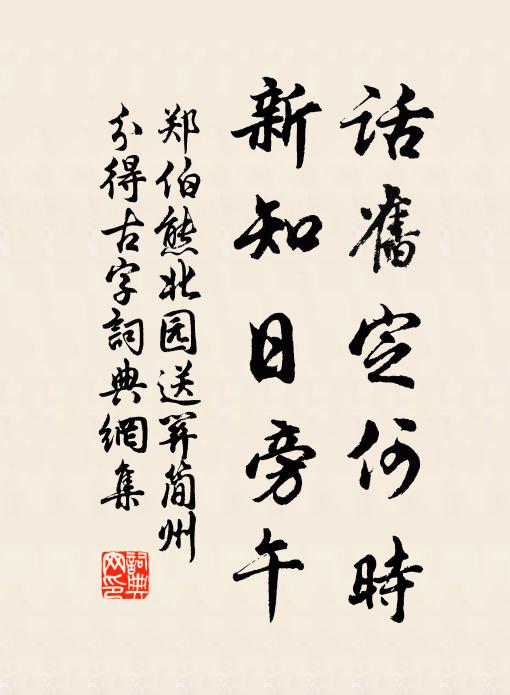 話舊定何時
新知日旁午
郑伯熊北园送簡州
分得古字詞典網集
詞典网印